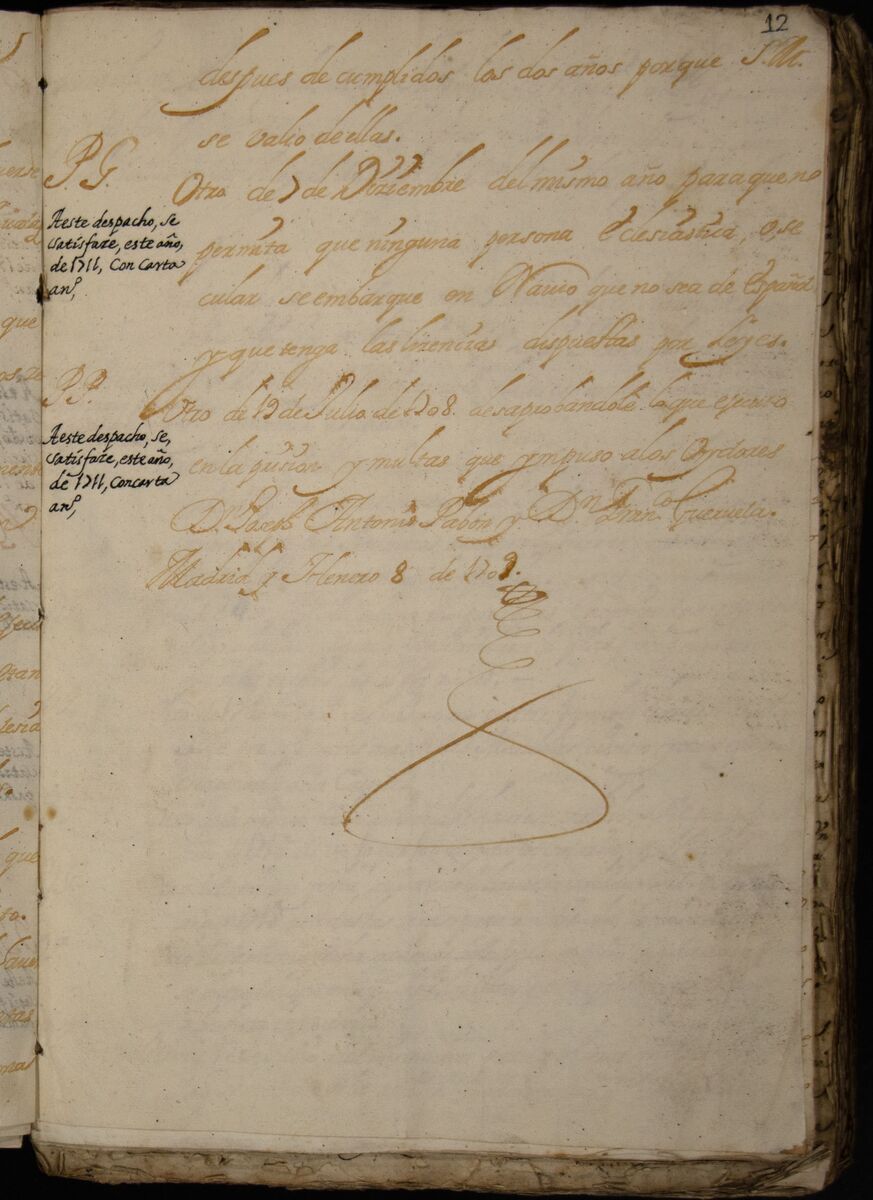 12
despues de cumplidos los dos años porque S.M.
se valio de ellas.
P.G.
Otro de 7 de Diziembre del mismo año para que no
permita que ninguna persona Eclesiastica, o, se
cular se embarque en Navio que no sea de Español
y que tenga las licencias dispuestas por Leyes.
A este despacho, se
satisfaze, este año,
de 1711, Con Carta
an.ᵒ,
P.P.
Otro de 19 de Julio de 1708. desaprobandole lo que executo
en la prision y multas que ympuso a los Oydores
D.ⁿ Joseph Antonio Pabon y D.ⁿ Fran.ᶜᵒ
Madrid y Henero 8 de 1709.
A este despacho, se,
satisfaze, este año,
de 1711, Con carta
an.ᵒ,